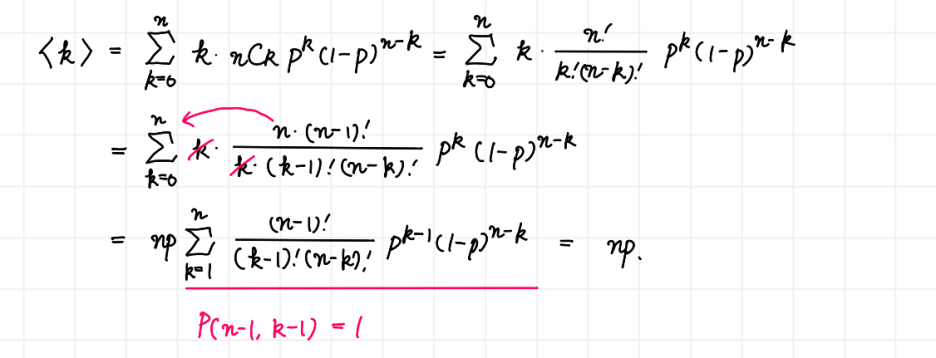 ⟨k⟩ = \sum_{k=0}^{n} k · nCk p^k (1-p)^{n-k} = \sum_{k=0}^{n} k · \frac{n!}{k!(n-k)!} p^k (1-p)^{n-k}
= \sum_{k=0}^{n} \cancel{k} · \frac{n·(n-1)!}{\cancel{k}·(k-1)!(n-k)!} p^k (1-p)^{n-k}
= np \sum_{k=1}^{n} \frac{(n-1)!}{(k-1)!(n-k)!} p^{k-1} (1-p)^{n-k} = np.
P(n-1, k-1) = 1